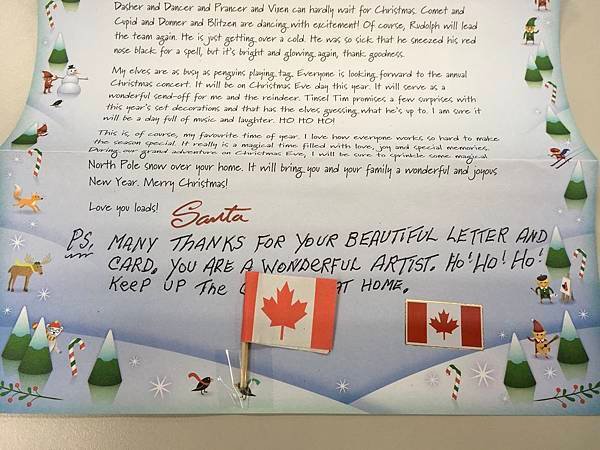 Dasher and Dancer and Prancer and Vixen can hardly wait for Christmas. Comet and
Cupid and Donner and Blitzen are dancing with excitement! Of course, Rudolph will lead
the team again. He is just getting over a cold. He was so sick that he sneezed his red
nose black for a spell, but it's bright and glowing again, thank goodness.
My elves are as busy as penguins playing tag. Everyone is looking forward to the annual
Christmas concert. It will be on Christmas Eve day this year. It will serve as a
wonderful send-off for me and the reindeer. Tinsel Tim promises a few surprises with
this year's set decorations and that has the elves guessing what he's up to. I am sure it
will be a day full of music and laughter. HO HO HO!
This is, of course, my favourite time of year. I love how everyone works so hard to make
the season special. It really is a magical time filled with love, joy and special memories.
During our grand adventure on Christmas Eve, I will be sure to sprinkle some magical
North Pole snow over your home. It will bring you and your family a wonderful and joyous
New Year. Merry Christmas!
Love you loads! Santa
PS. MANY THANKS FOR YOUR BEAUTIFUL LETTER AND
CARD. YOU ARE A WONDERFUL ARTIST. HO! HO! HO!
KEEP UP THE AT HOME.